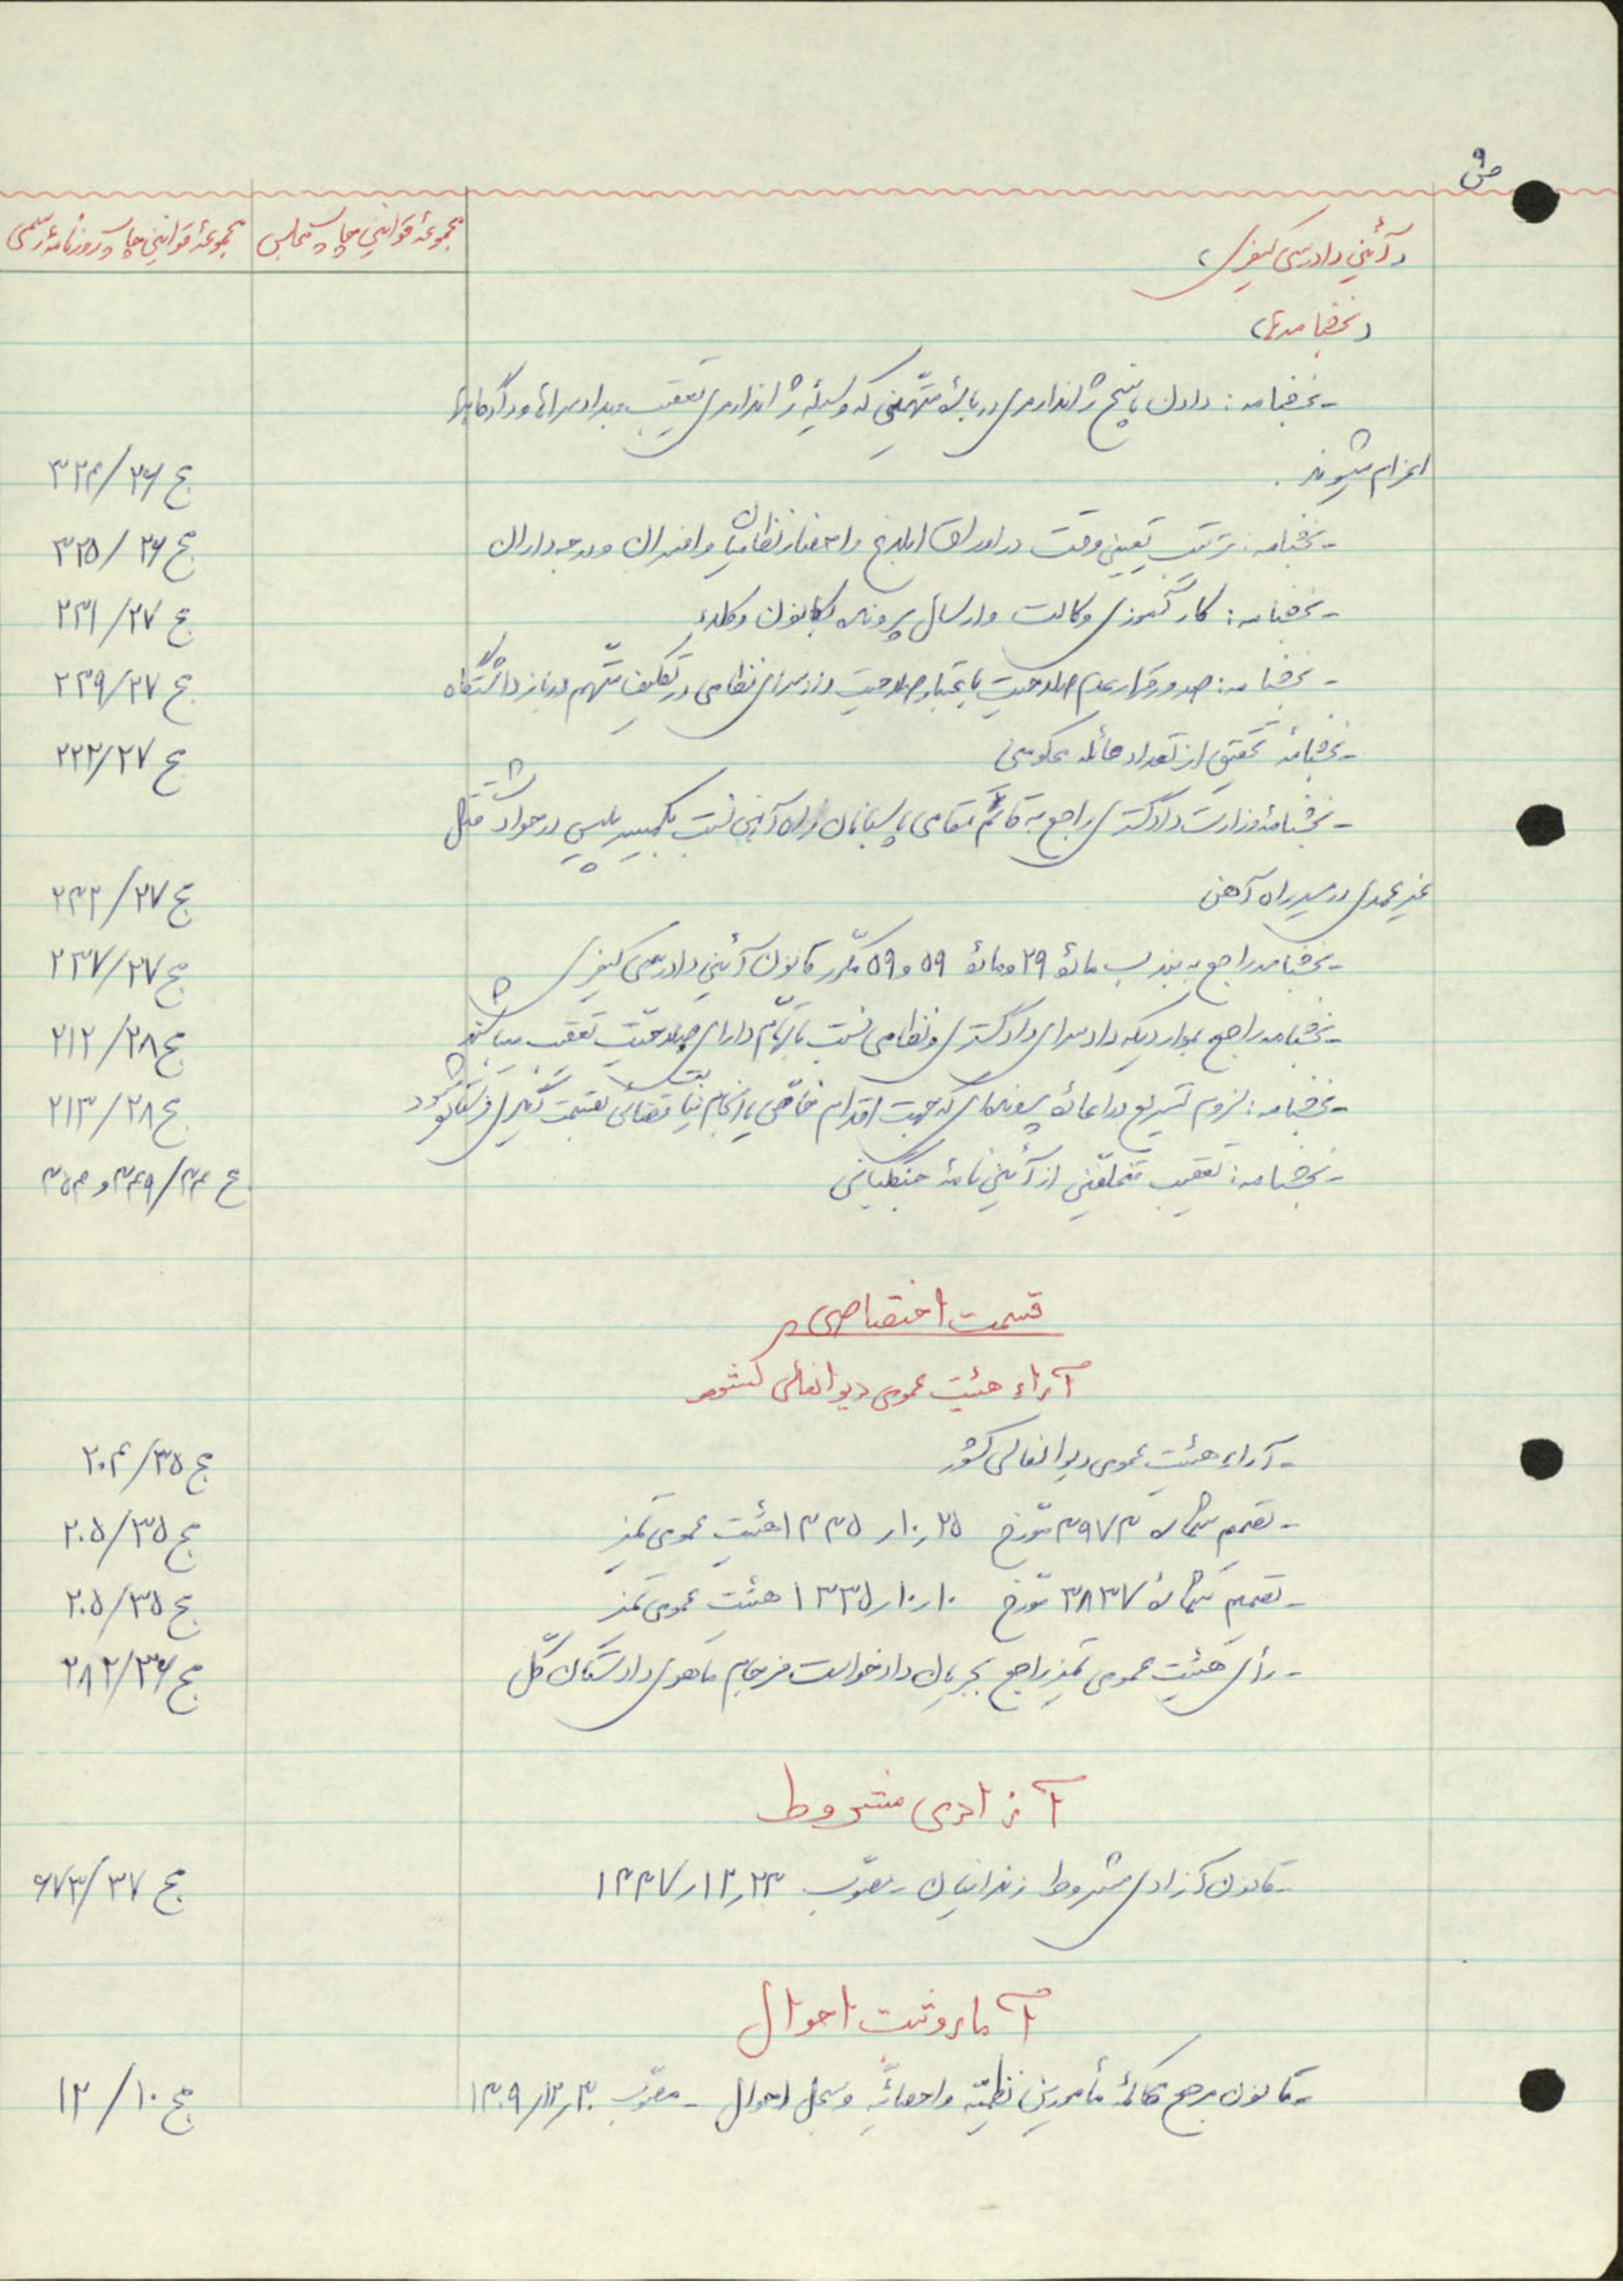 ص ۹
مجموعهٔ قوانین چاپ مجلس
مجموعهٔ قوانین چاپ روزنامهٔ رسمی
(آئین دادرسی کیفری)
(بخشنامه‌ها)
- بخشنامه: دادن پاسخ ژاندارمری دربارهٔ متهمینی که وسیلهٔ ژاندارمری تعقیب و بدادسراها و دادگاهها
اعزام میشوند. ج ۲۶/۳۲۴
- بخشنامه: ترتیب تعیین وقت در اوراق ابلاغ و احضار نظامیان و افسران و درجه‌داران ج ۲۶/۳۲۵
- بخشنامه: کارآموزی وکالت و ارسال پرونده بکانون وکلاء ج ۲۷/۲۳۱
- بخشنامه: صدور قرار عدم صلاحیت باعتبار صلاحیت دادسرای نظامی در تکلیف متهم در بازداشتگاه ج ۲۷/۲۳۹
- بخشنامهٔ تحقیق از تعداد عائله محکومین ج ۲۷/۲۲۲
- بخشنامهٔ وزارت دادگستری راجع به قائم مقامی پاسبانان راه‌آهن نسبت بکمیسر پلیس در حوادث قتل
غیر عمدی در مسیر راه آهن ج ۲۷/۲۴۲
- بخشنامه راجع به بند ب مادهٔ ۲۹ و مادهٔ ۵۹ و ۵۹ مکرر قانون آئین دادرسی کیفری ج ۲۷/۲۳۷
- بخشنامه راجع بمواردیکه دادسرای دادگستری و نظامی نسبت باتهام دارای صلاحیت تعقیب میباشند ج ۲۸/۲۱۲
- بخشنامه: لزوم تسریع در اعادهٔ پرونده‌های که جهت اقدام خاصی یا انجام نیابت قضائی بقسمت دیگری فرستاده میشود ج ۲۸/۲۱۳
- بخشنامه: تعقیب متخلفین از آئین نامهٔ جنگلبانی ج ۳۴/۳۴۹ و ۳۵۴
قسمت اختصاصی
آراء هیئت عمومی دیوانعالی کشور
- آراء هیئت عمومی دیوانعالی کشور ج ۳۵/۲۰۴
- تصمیم شمارهٔ ۳۹۷۳ مورخ ۲۵ر۱۰ر۱۳۳۵ هیئت عمومی تمیز ج ۳۵/۲۰۵
- تصمیم شمارهٔ ۳۸۳۷ مورخ ۱۰ر۱۰ر۱۳۳۵ هیئت عمومی تمیز ج ۳۵/۲۰۵
- رأی هیئت عمومی تمیز راجع بجریان دادخواست فرجام ماهوی دادستان کل ج ۳۶/۲۸۲
آزادی مشروط
- قانون آزادی مشروط زندانیان - مصوب ۲۳ر۱۲ر۱۳۳۷ ج ۳۷/۶۷۳
آمار و ثبت احوال
- قانون مرجع محاکمهٔ مأمورین نظمیه و احصائیه و سجل احوال - مصوب ۳۰ر۱۲ر۱۳۰۹ ج ۱۰/۱۲